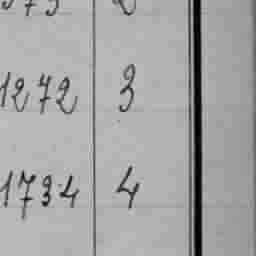 1272 3
1734 4